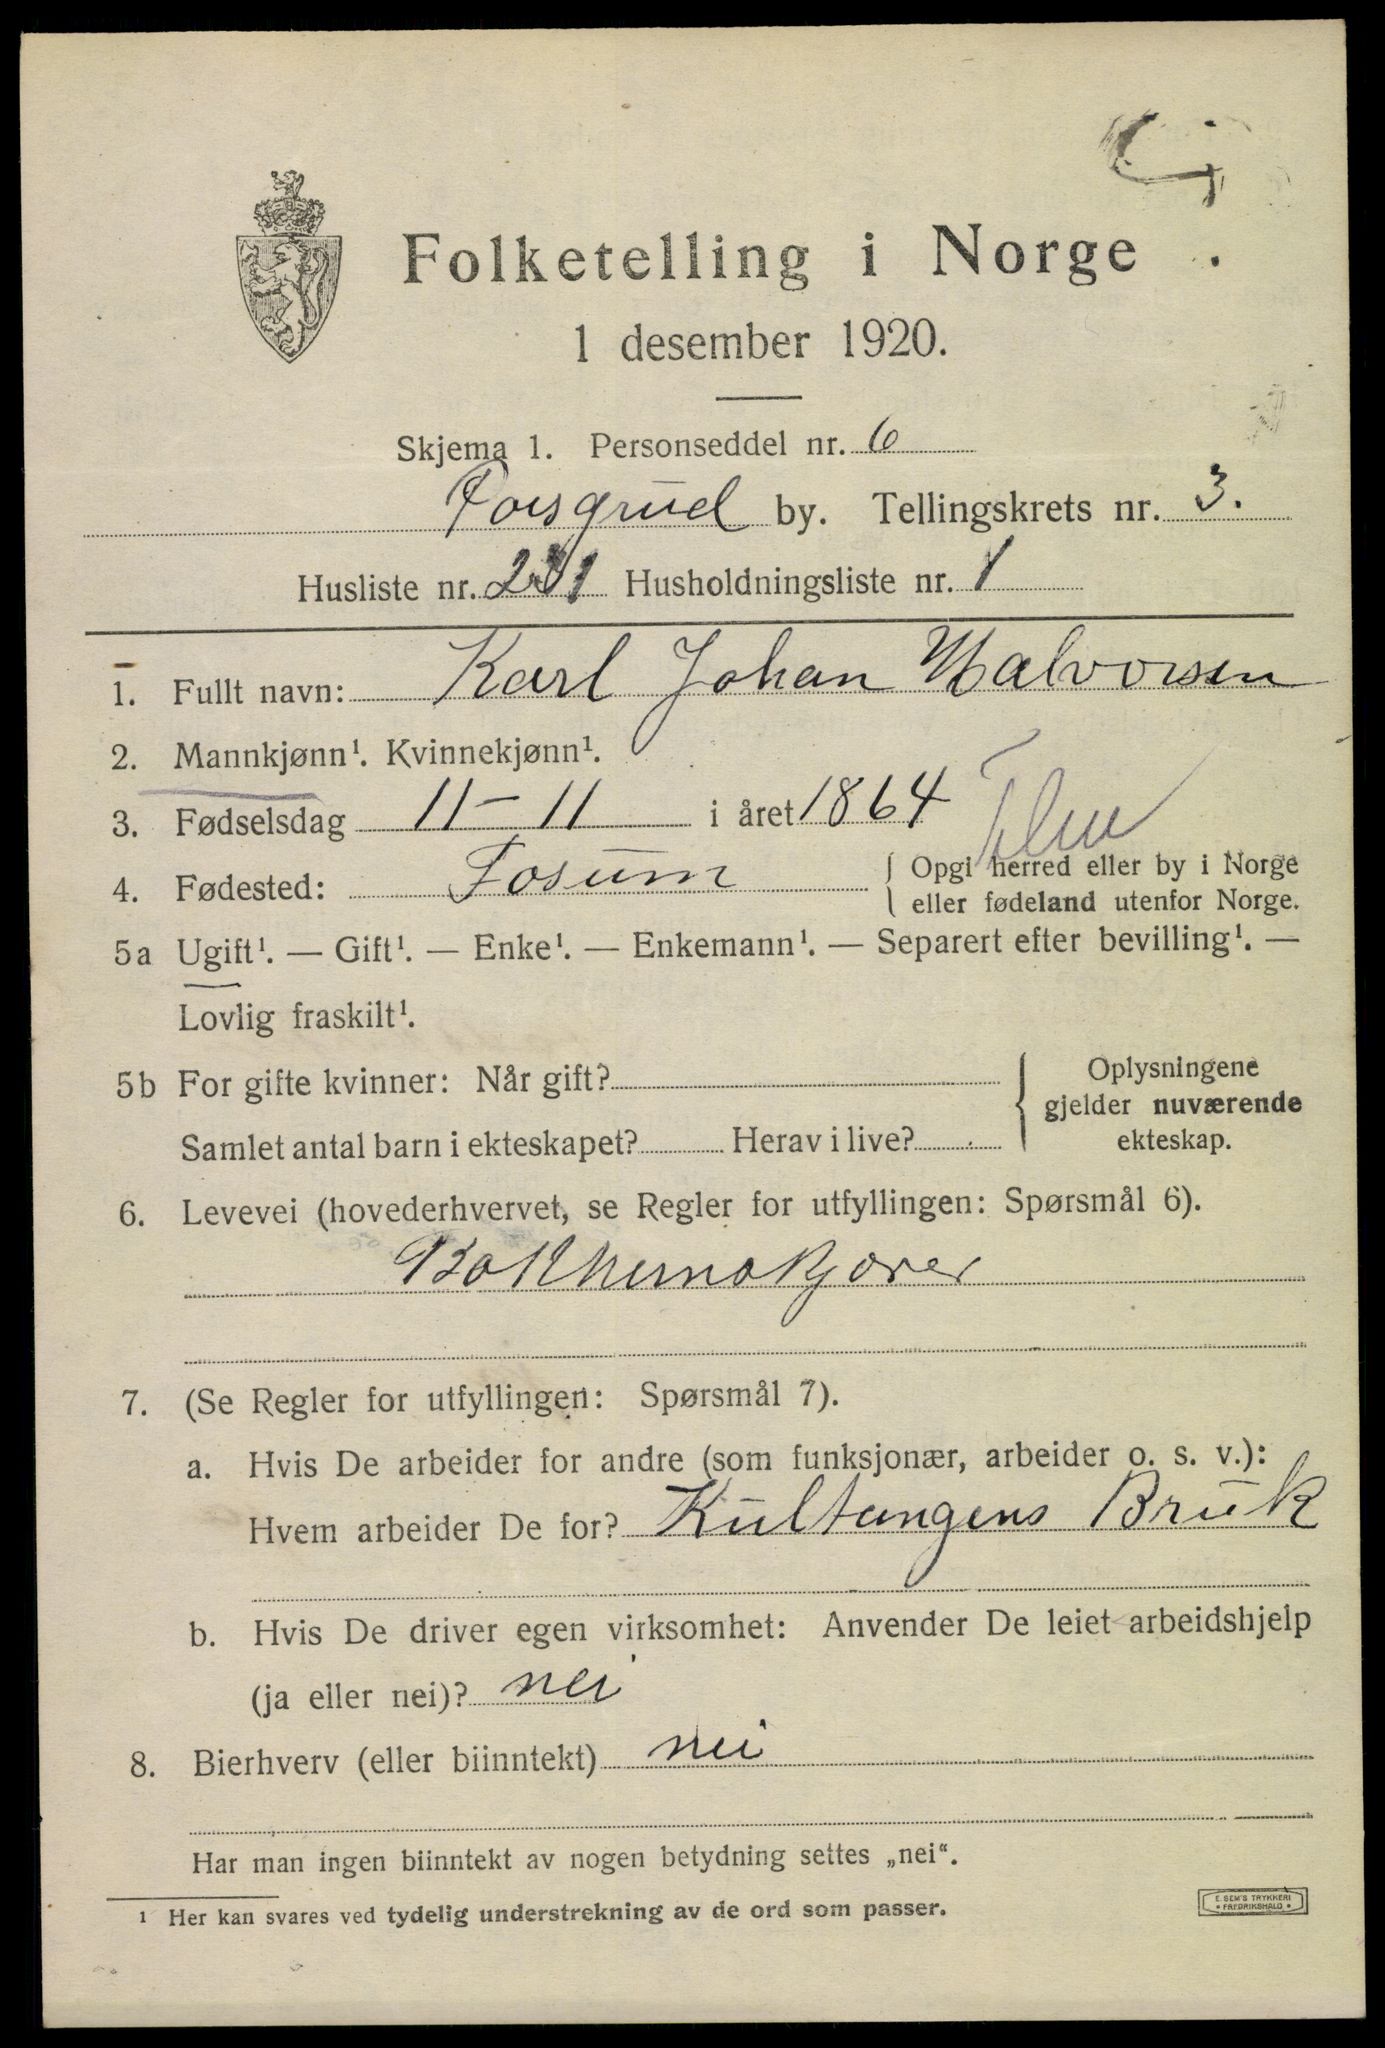 Folketelling i Norge
1 desember 1920.
Skjema 1. Personseddel nr. 6
Porsgrud by. Tellingskrets nr. 3.
Husliste nr. 231 Husholdningsliste nr. 1
1. Fullt navn: Karl Johan Halvorsen
2. Mannkjønn¹. Kvinnekjønn¹.
3. Fødselsdag 11-11 i året 1864
4. Fødested: Fosum { Opgi herred eller by i Norge
eller fødeland utenfor Norge.
5a Ugift¹. — Gift¹. — Enke¹. — Enkemann¹. — Separert efter bevilling¹. —
Lovlig fraskilt¹.
5b For gifte kvinner: Når gift? { Oplysningene
gjelder nuværende
ekteskap.
Samlet antal barn i ekteskapet? Herav i live?
6. Levevei (hovederhvervet, se Regler for utfyllingen: Spørsmål 6).
7. (Se Regler for utfyllingen: Spørsmål 7).
a. Hvis De arbeider for andre (som funksjonær, arbeider o. s. v.):
Hvem arbeider De for? Kultangens Bruk
b. Hvis De driver egen virksomhet: Anvender De leiet arbeidshjelp
(ja eller nei)? nei
8. Bierhverv (eller biinntekt) nei
Har man ingen biinntekt av nogen betydning settes „nei“.
¹ Her kan svares ved tydelig understrekning av de ord som passer.
E. SEM'S TRYKKERI
FREDRIKSHALD